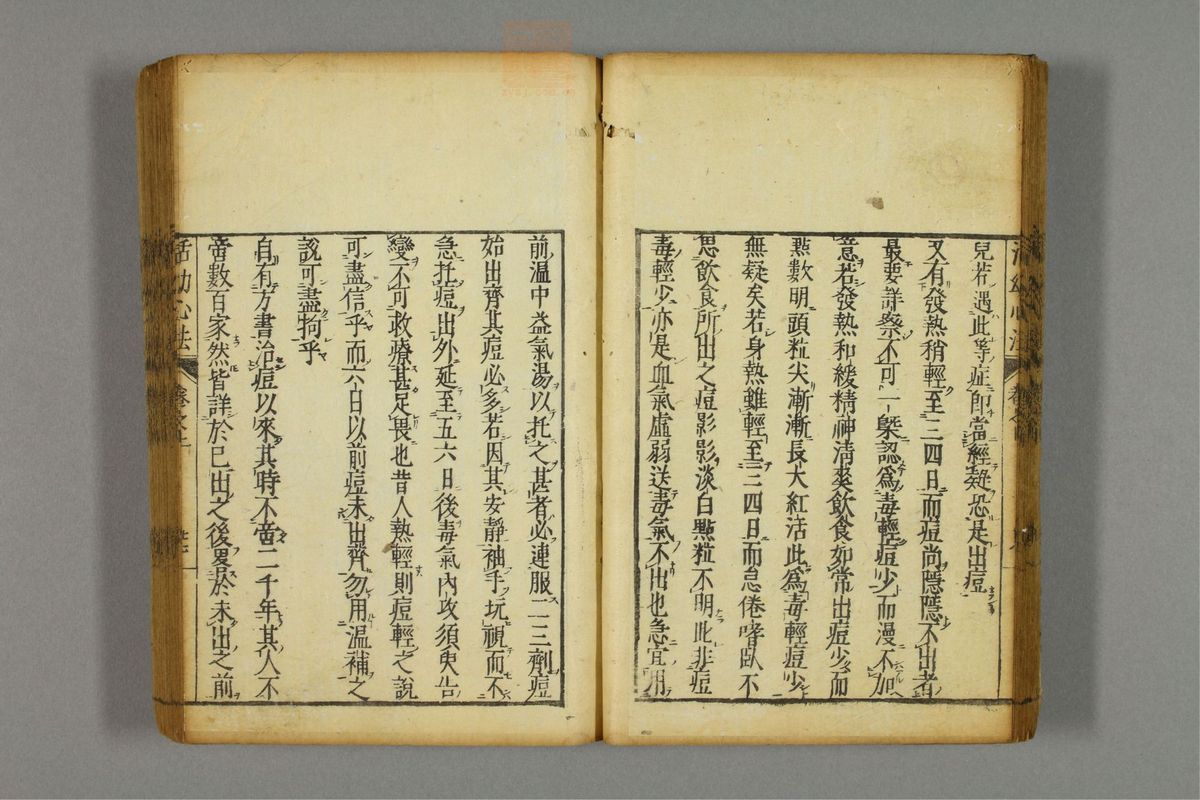 活幼心法
卷之
兒若遇此等症即當經疑恐是出痘
又有發熱稍輕至三四日而痘尚隱隱不出者
最要詳察不可一槩認爲毒輕痘少而漫不加
意若發熱和緩精神清爽飲食如常出痘少而
點數明頭粒尖漸漸長大紅活此爲毒輕痘少
無疑矣若身熱雖輕至三四日而怠倦嗜臥不
思飲食所出之痘影影淡白點粒不明此非痘
毒輕少亦是血氣虛弱送毒氣不出也急宜用
前溫中益氣湯以托之甚者必連服二三劑痘
始出齊其痘必多若因其安靜袖手玩視而不
急托痘出外延至五六日後毒氣內攻須臾告
變不可救療甚足畏也昔人熱輕則痘輕之說
可盡信乎而六日以前痘未出齊勿用溫補之
說可盡拘乎
自有方書治痘以來其時不啻二千年其人不
啻數百家然皆詳於已出之後畧於未出之前
活幼心法
卷之